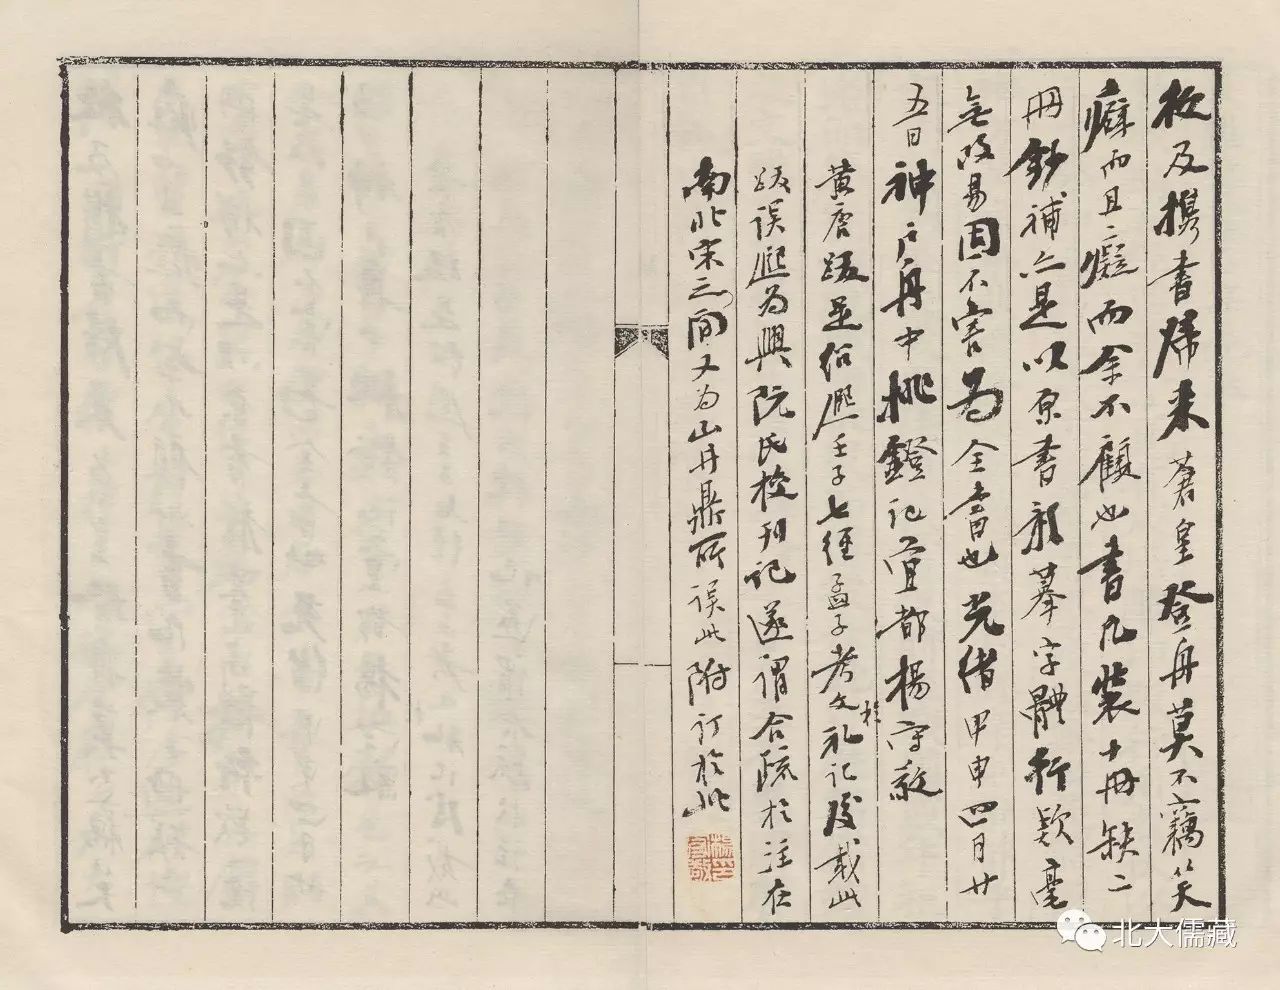 板及携書歸来蒼皇登舟莫不竊笑
癖而且癡而余不顧也書凡装十冊缺二
冊鈔補亦是以原書影摹字體行款毫
無改易固不害為全書也光緒甲申四月廿
五日神戶舟中挑鐙記宜都楊守敬
黄唐跋是紹熙壬子七經孟子考文於礼記後載此
跋误熙為興阮氏校刊記遂謂合疏於注在
南北宋之间又為山井鼎所误此附訂於此
北大儒藏